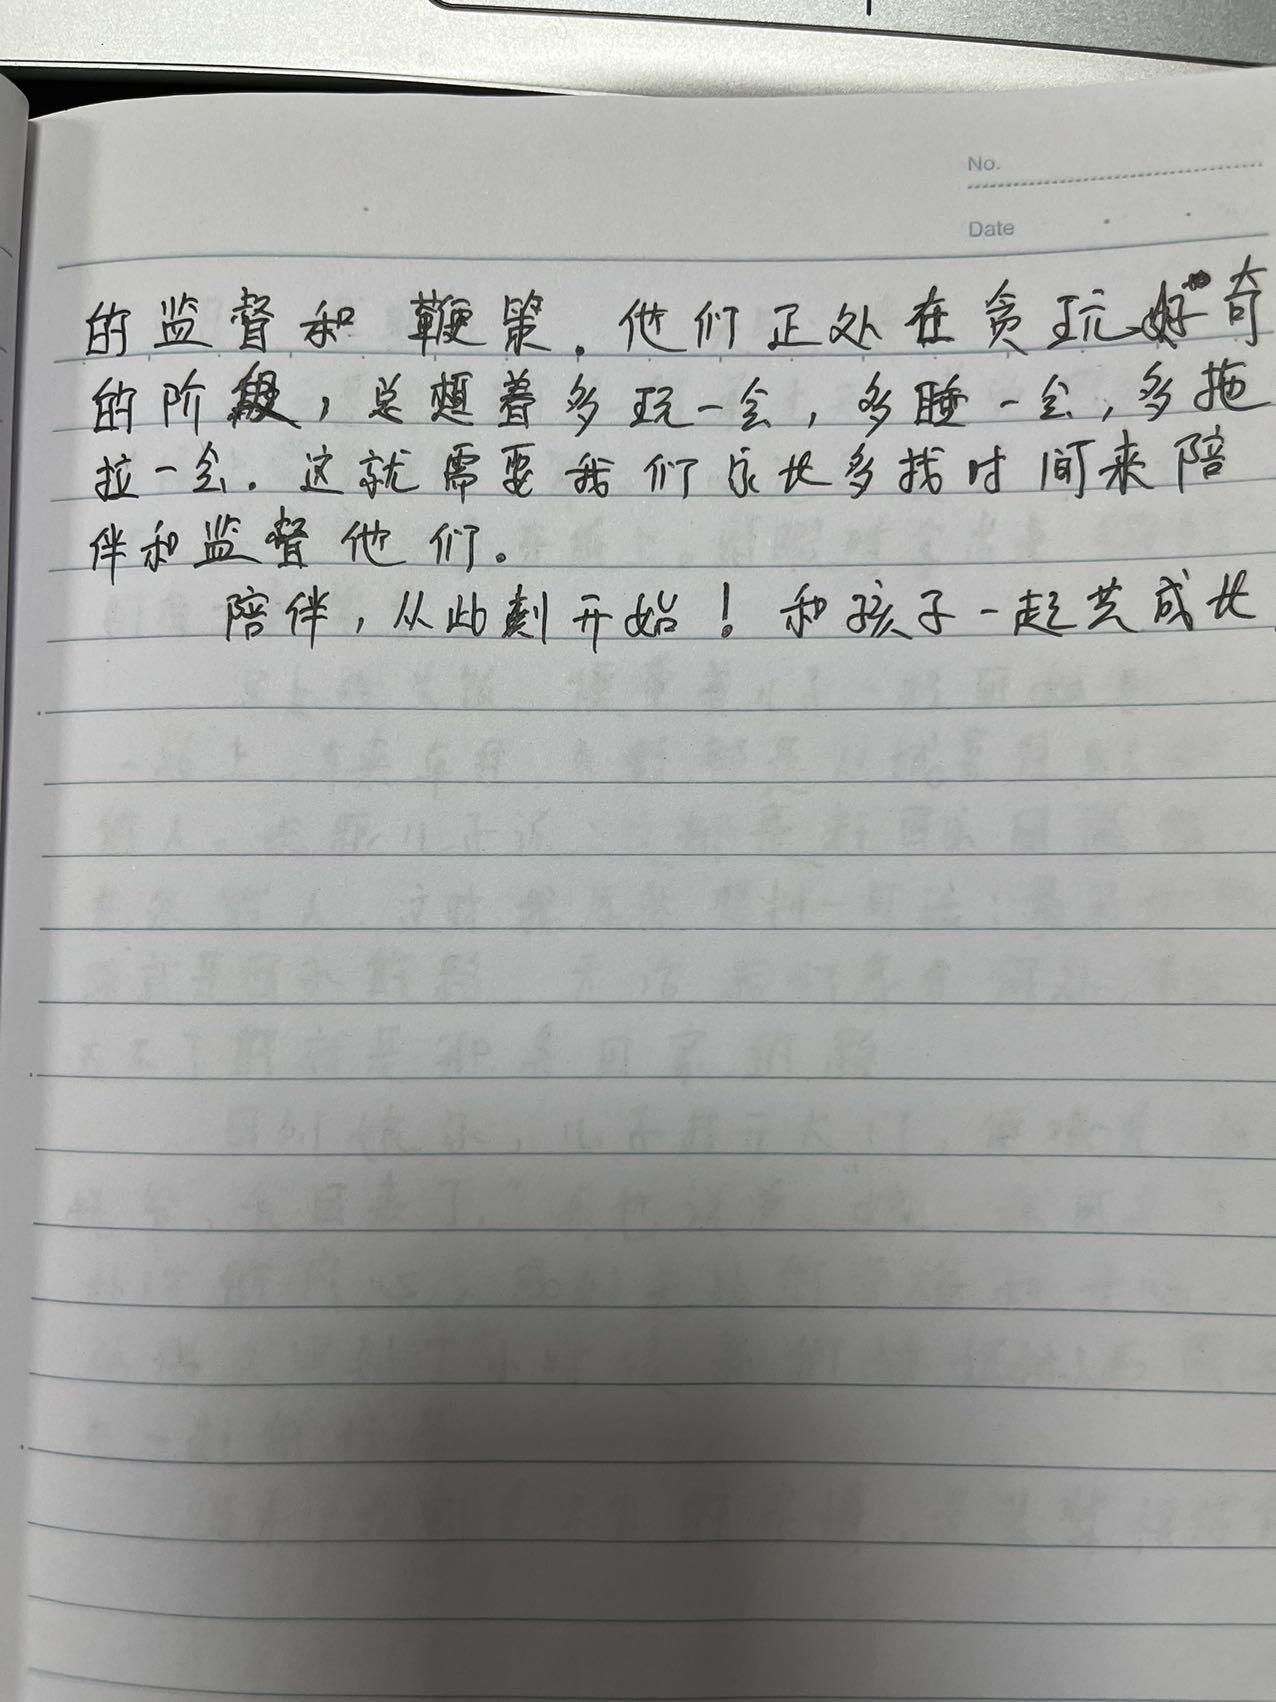 No.
Date
的监督和鞭策。他们正处在贪玩、好奇
的阶段，总想着多玩一会，多睡一会，多拖
拉一会。这就需要我们家长多找时间来陪
伴和监督他们。
陪伴，从此刻开始！和孩子一起共成长